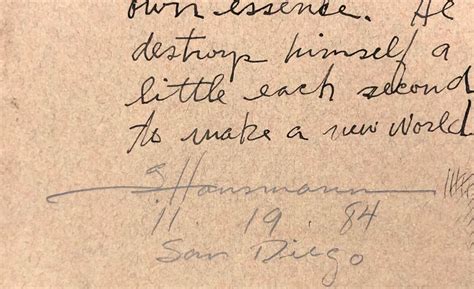 own essence. He
destroys himself a
little each second
to make a new World
Hausmann
11 . 19 . 84
San Diego